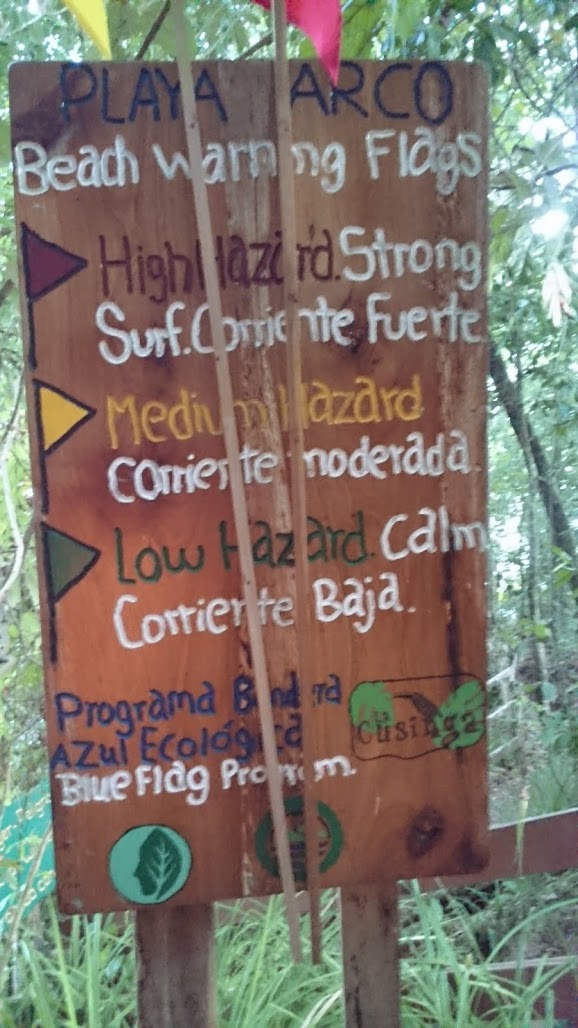 PLAYA ARCO
Beach Warning Flags
High Hazard. Strong
Surf. Corriente Fuerte
Medium Hazard
Corriente moderada.
Low Hazard. Calm
Corriente Baja.
Programa Bandera
Azul Ecológica
Blue Flag Program.
Cusinga